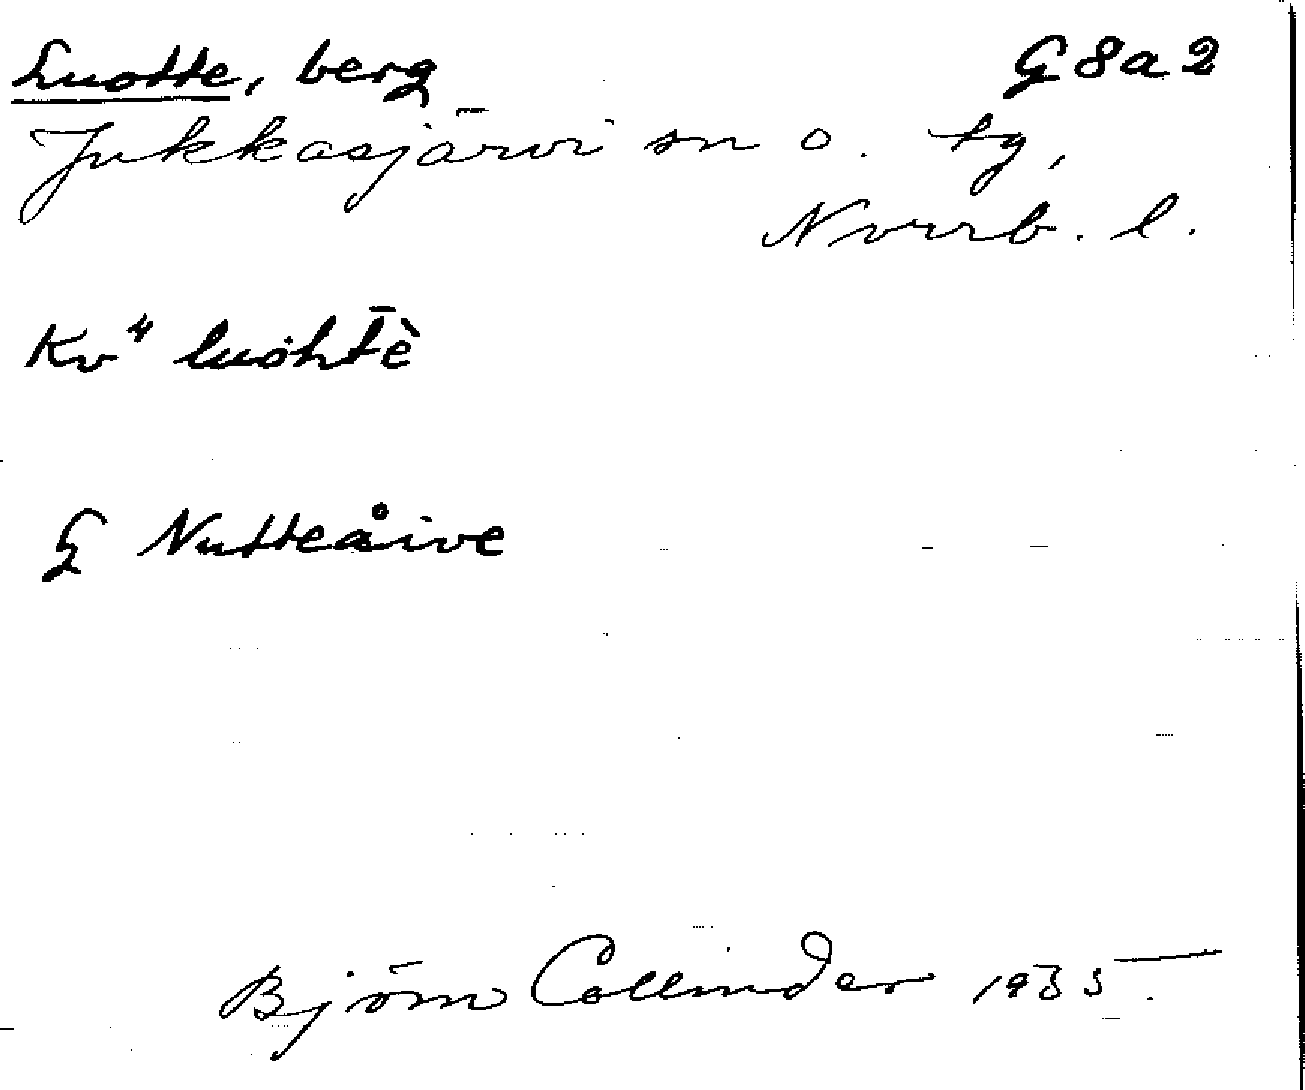 Luotte, berg G8a2
Jukkasjärvi sn o. tg,
Norrb. l.
Kv⁴ luohtt̄è
G Nutteåive
Björn Collinder 1935.